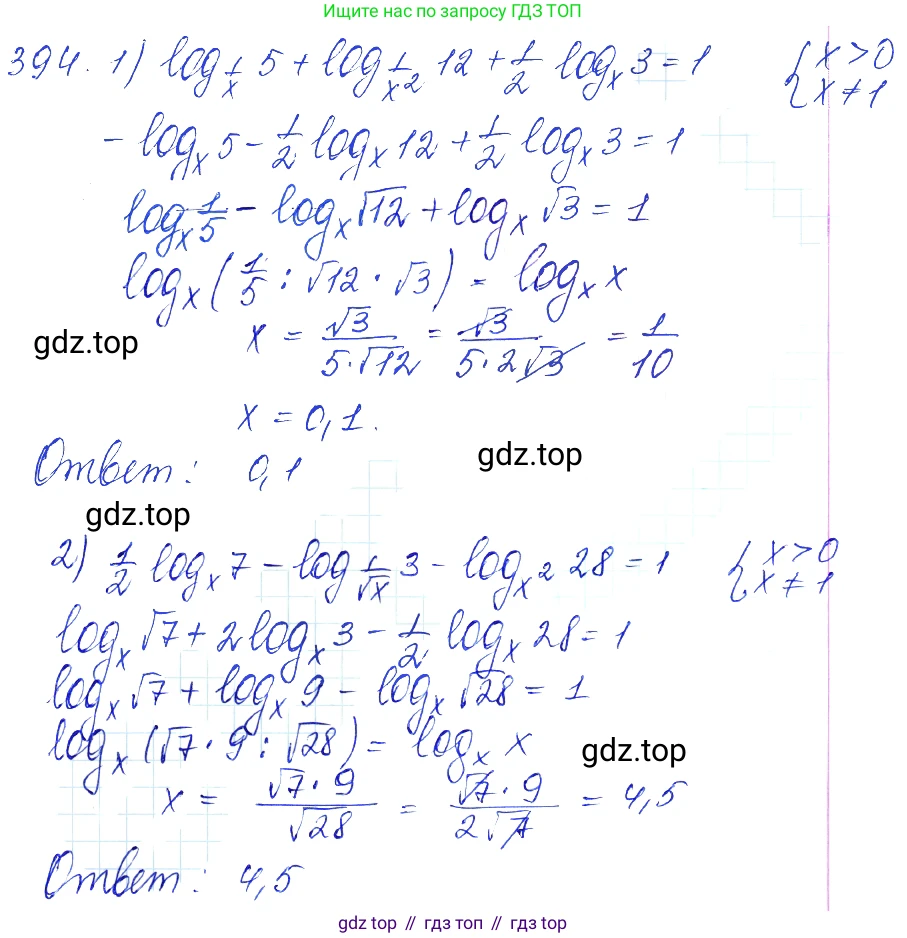 Ищите нас по запросу ГДЗ ТОП
394. 1) log_{1/x} 5 + log_{1/x²} 12 + 1/2 log_x 3 = 1 { x > 0
x ≠ 1
- log_x 5 - 1/2 log_x 12 + 1/2 log_x 3 = 1
log_x 1/5 - log_x √12 + log_x √3 = 1
log_x (1/5 : √12 · √3) = log_x x
gdz.top
x = √3/(5·√12) = √3/(5·2√3) = 1/10
x = 0,1.
Ответ: 0,1
gdz.top
gdz.top
2) 1/2 log_x 7 - log_{1/√x} 3 - log_{x²} 28 = 1 { x > 0
x ≠ 1
log_x √7 + 2 log_x 3 - 1/2 log_x 28 = 1
log_x √7 + log_x 9 - log_x √28 = 1
log_x (√7 · 9 : √28) = log_x x
gdz.top
x = (√7 · 9)/√28 = (√7 · 9)/(2√7) = 4,5
Ответ: 4,5
gdz top // гдз топ // gdz top